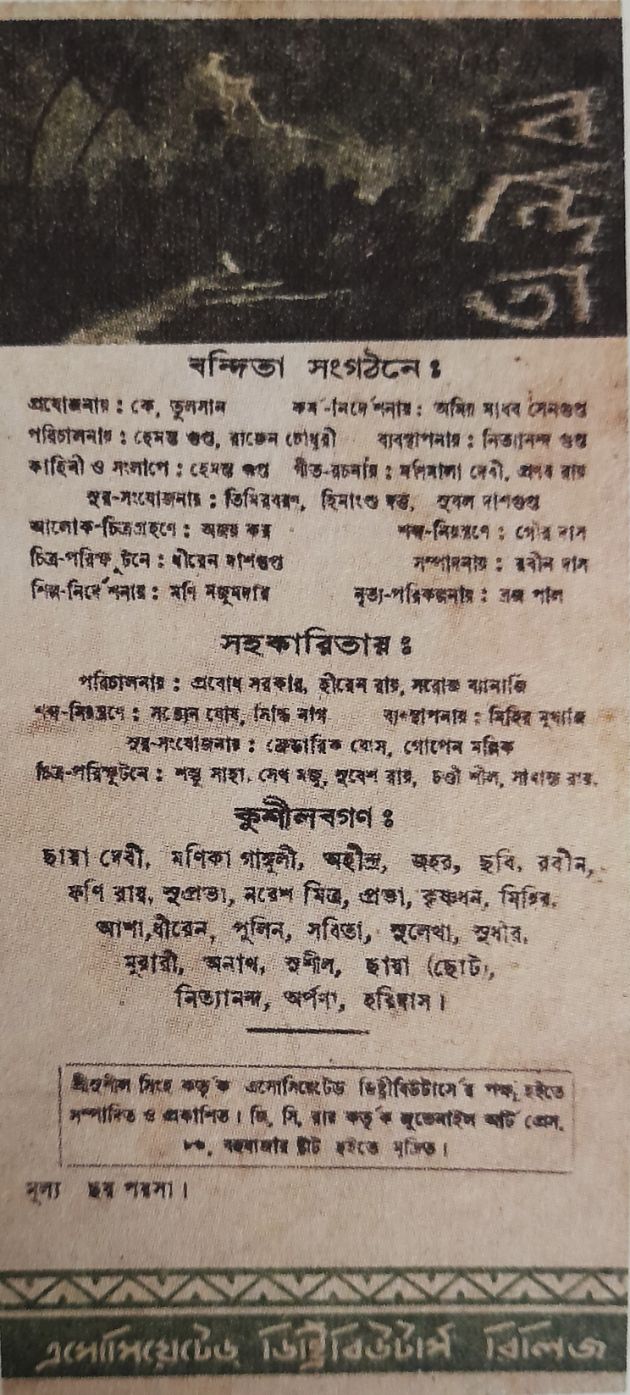 বন্দিতা সংগঠনে :
প্রযোজনায় : কে, তুলসান    কর্ম-নির্দেশনায় : অমিয় মাধব সেনগুপ্ত
পরিচালনায় : হেমন্ত গুপ্ত, রাজেন চৌধুরী    ব্যবস্থাপনায় : নিত্যানন্দ গুপ্ত
কাহিনী ও সংলাপে : হেমন্ত গুপ্ত    গীত-রচনায় : মণিমালা দেবী, প্রণব রায়
সুর-সংযোজনায় : তিমিরবরণ, হিমাংশু দত্ত, সুবল দাশগুপ্ত
আলোক-চিত্রগ্রহণে : অজয় কর    শব্দ-নিয়ন্ত্রণে : গৌর দাস
চিত্র-পরিস্ফুটনে : ধীরেন দাশগুপ্ত    সম্পাদনায় : রবীন দাস
শিল্প-নির্দেশনায় : মণি মজুমদার    নৃত্য-পরিকল্পনায় : ব্রজ পাল
সহকারিতায় :
পরিচালনায় : প্রবোধ সরকার, হীরেন রায়, সরোজ ব্যানার্জি
শব্দ-নিয়ন্ত্রণে : সন্তোন ঘোষ, সিদ্ধি নাগ    ব্যবস্থাপনায় : মিহির মুখার্জি
সুর-সংযোজনায় : ফ্রেডারিক ঘোস, গোপেন মল্লিক
চিত্র-পরিস্ফুটনে : শম্ভু সাহা, সেখ মজু, সুরেশ রায়, চণ্ডী শীল, রায়.
কুশীলবগণ :
ছায়া দেবী, মণিকা গাঙ্গুলী, অহীন্দ্র, জহর, ছবি, রবীন,
ফণি রায়, সুপ্রভা, নরেশ মিত্র, প্রভা, কৃষ্ণধন, মিহির,
আশা, ধীরেন, পুলিন, সবিতা, সুলেখা, সুধীর,
মুরারী, অনাথ, সুশীল, ছায়া (ছোট),
নিত্যানন্দ, অর্পণা, হরিদাস।
শ্রীসুশীল সিংহ কর্তৃক এসোসিয়েটেড ডিষ্ট্রীবিউটার্সের পক্ষ হইতে
সম্পাদিত ও প্রকাশিত। জি, সি, রায় কর্তৃক জুভেনাইল আর্ট প্রেস,
৮৬, বহুবাজার ষ্ট্রীট হইতে মুদ্রিত।
মূল্য ছয় পয়সা।
এসোসিয়েটেড ডিষ্ট্রিবিউটার্স রিলিজ